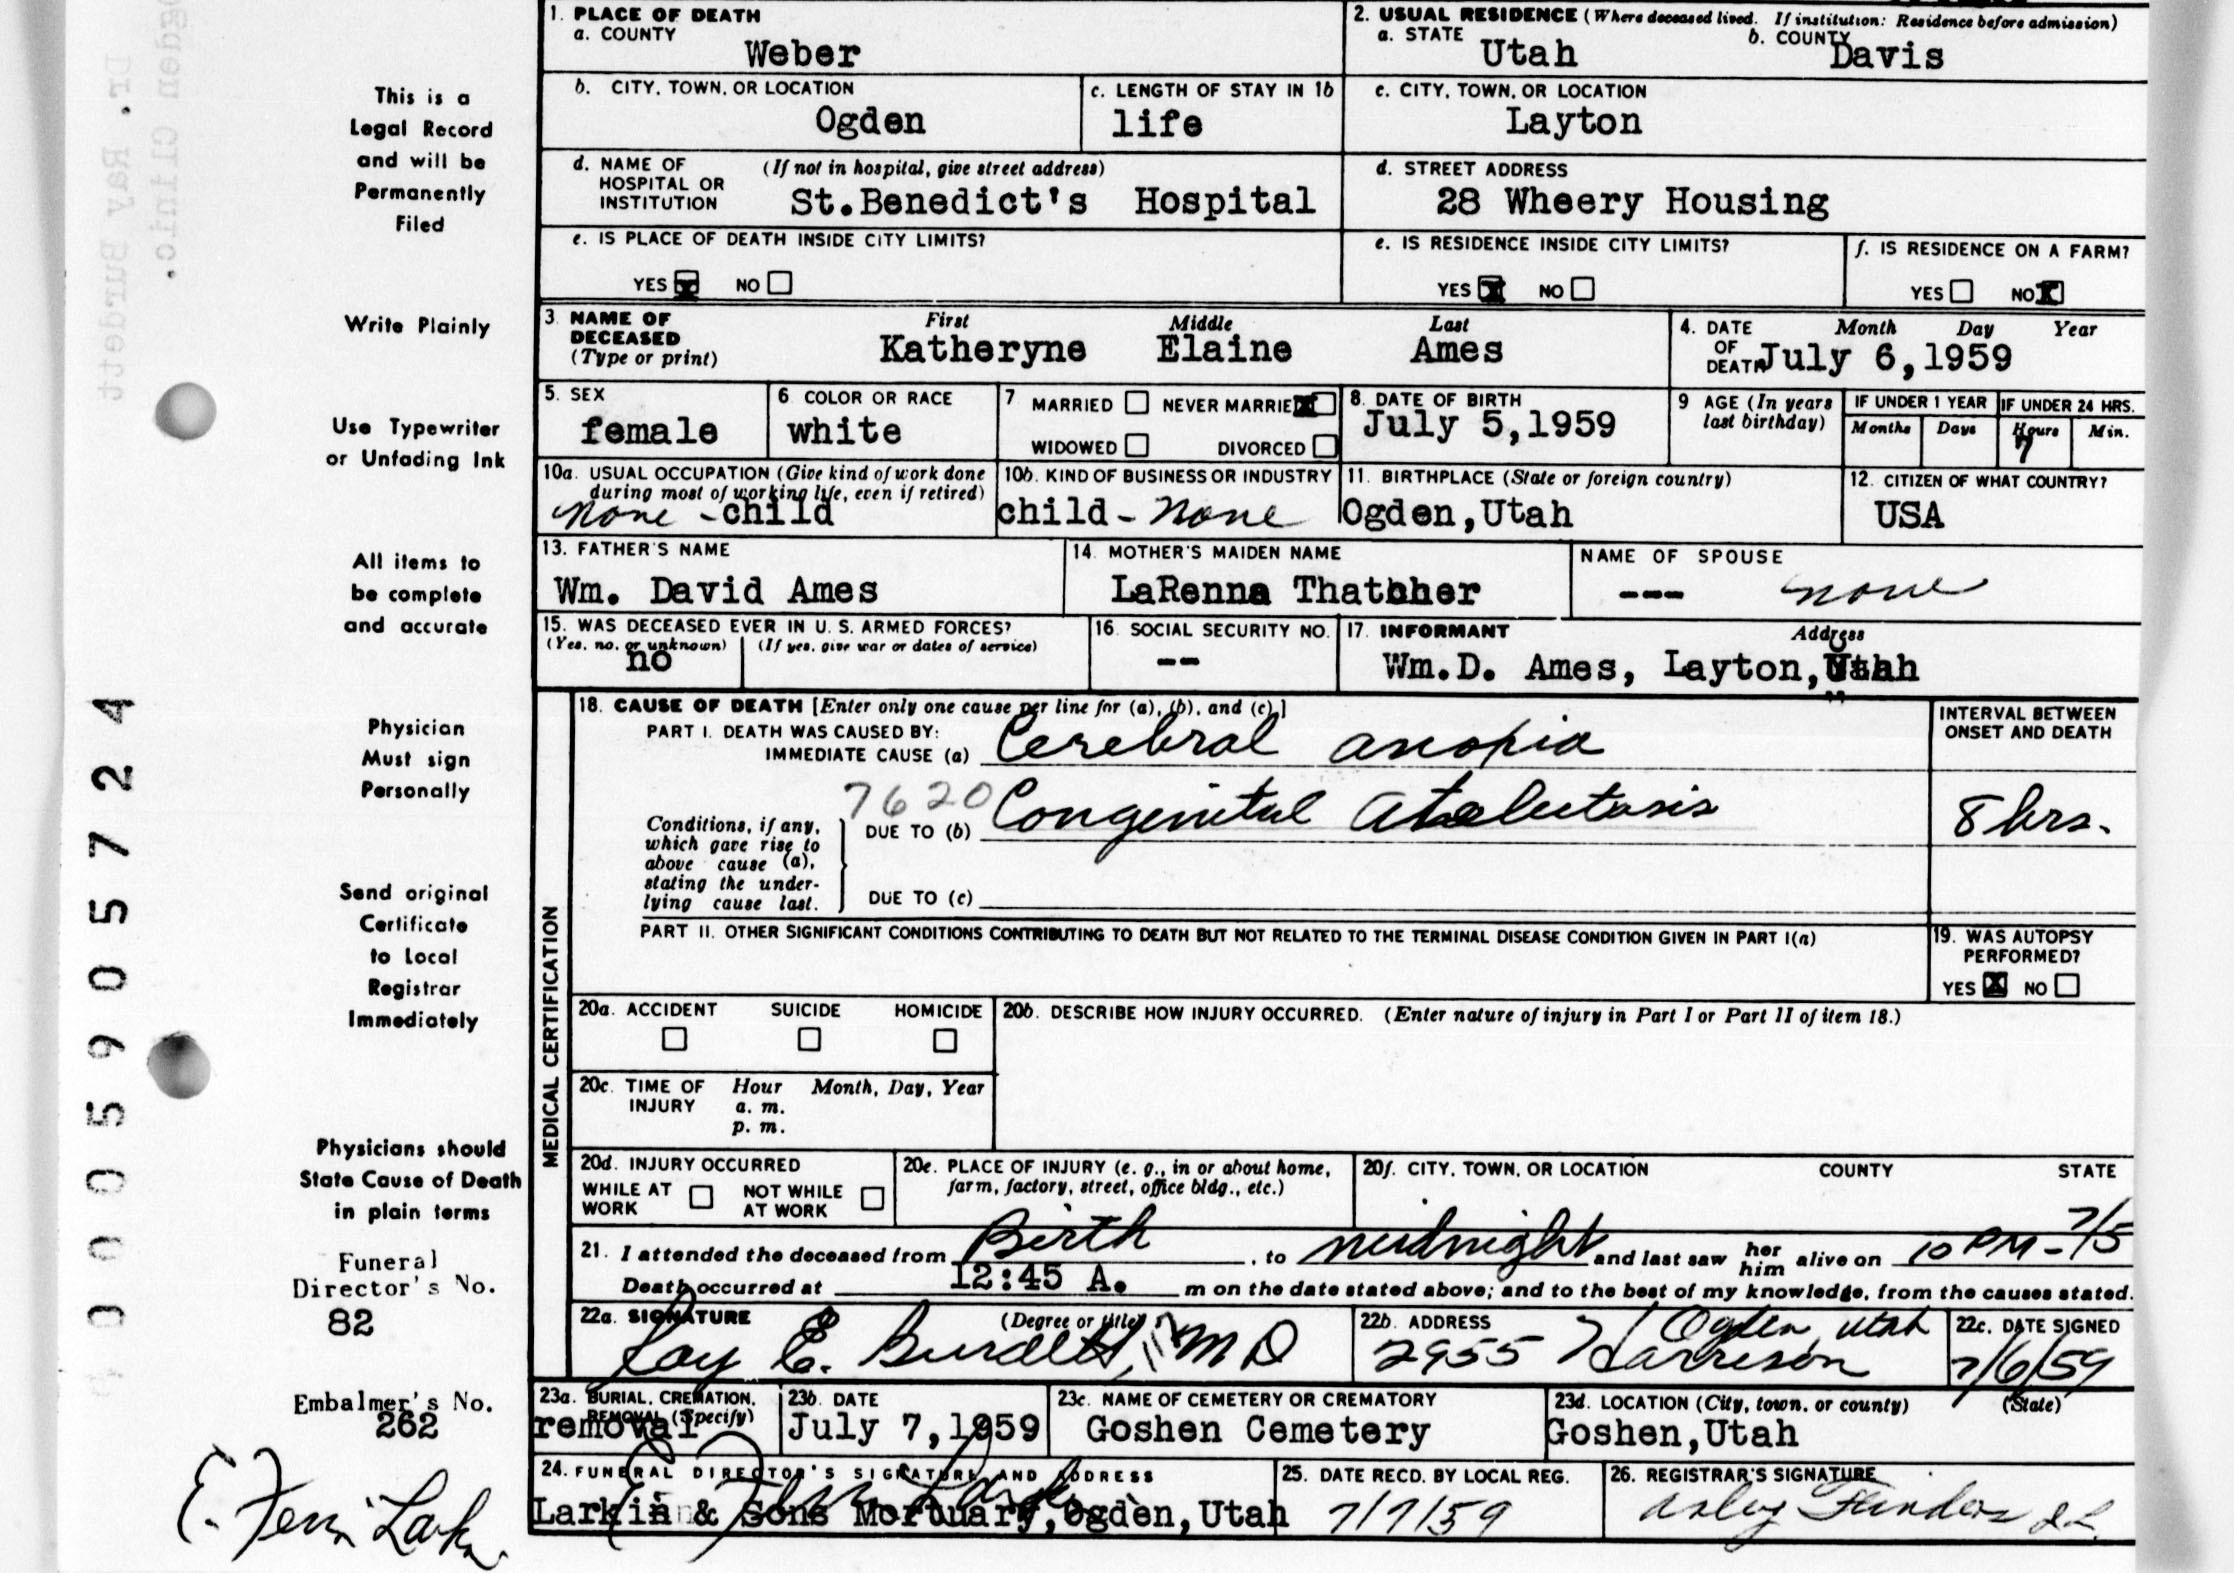 1. PLACE OF DEATH
a. COUNTY
Weber
2. USUAL RESIDENCE (Where deceased lived. If institution: Residence before admission)
a. STATE
Utah
b. COUNTY
Davis
b. CITY, TOWN, OR LOCATION
Ogden
c. LENGTH OF STAY IN 1b
life
c. CITY, TOWN, OR LOCATION
Layton
d. NAME OF HOSPITAL OR INSTITUTION
(If not in hospital, give street address)
St.Benedict's Hospital
d. STREET ADDRESS
28 Wheery Housing
e. IS PLACE OF DEATH INSIDE CITY LIMITS?
YES X NO
e. IS RESIDENCE INSIDE CITY LIMITS?
YES X NO
f. IS RESIDENCE ON A FARM?
YES NO X
3. NAME OF DECEASED (Type or print)
First Middle Last
Katheryne Elaine Ames
4. DATE OF DEATH
Month Day Year
July 6,1959
5. SEX
female
6. COLOR OR RACE
white
7. MARRIED NEVER MARRIED X
WIDOWED DIVORCED
8. DATE OF BIRTH
July 5,1959
9 AGE (In years last birthday)
IF UNDER 1 YEAR
Months Days
IF UNDER 24 HRS.
Hours Min.
7
10a. USUAL OCCUPATION (Give kind of work done during most of working life, even if retired)
none - child
10b. KIND OF BUSINESS OR INDUSTRY
child - none
11. BIRTHPLACE (State or foreign country)
Ogden,Utah
12. CITIZEN OF WHAT COUNTRY?
USA
13. FATHER'S NAME
Wm. David Ames
14. MOTHER'S MAIDEN NAME
LaRenna Thatcher
NAME OF SPOUSE
--- none
15. WAS DECEASED EVER IN U. S. ARMED FORCES?
(Yes, no, or unknown) (If yes, give war or dates of service)
no
16. SOCIAL SECURITY NO.
--
17. INFORMANT Address
Wm.D. Ames, Layton,Utah
MEDICAL CERTIFICATION
18. CAUSE OF DEATH [Enter only one cause per line for (a), (b), and (c).]
PART I. DEATH WAS CAUSED BY:
IMMEDIATE CAUSE (a) Cerebral anoxia
INTERVAL BETWEEN ONSET AND DEATH
7620
Conditions, if any, which gave rise to above cause (a), stating the underlying cause last.
DUE TO (b) Congenital Atelectasis
8 hrs.
DUE TO (c)
PART II. OTHER SIGNIFICANT CONDITIONS CONTRIBUTING TO DEATH BUT NOT RELATED TO THE TERMINAL DISEASE CONDITION GIVEN IN PART I(a)
19. WAS AUTOPSY PERFORMED?
YES X NO
20a. ACCIDENT SUICIDE HOMICIDE
20b. DESCRIBE HOW INJURY OCCURRED. (Enter nature of injury in Part I or Part II of item 18.)
20c. TIME OF INJURY
Hour Month, Day, Year
a. m.
p. m.
20d. INJURY OCCURRED
WHILE AT WORK NOT WHILE AT WORK
20e. PLACE OF INJURY (e. g., in or about home, farm, factory, street, office bldg., etc.)
20f. CITY, TOWN, OR LOCATION COUNTY STATE
21. I attended the deceased from Birth, to midnight and last saw her him alive on 10 PM - 7/5
Death occurred at 12:45 A. m on the date stated above; and to the best of my knowledge, from the causes stated.
22a. SIGNATURE (Degree or title)
Ray E. Burdett, MD
22b. ADDRESS
2955 Harrison Ogden, Utah
22c. DATE SIGNED
7/6/59
23a. BURIAL, CREMATION, REMOVAL (Specify)
removal
23b. DATE
July 7,1959
23c. NAME OF CEMETERY OR CREMATORY
Goshen Cemetery
23d. LOCATION (City, town, or county) (State)
Goshen,Utah
24. FUNERAL DIRECTOR'S SIGNATURE AND ADDRESS
Larkin & Sons Mortuary,Ogden,Utah
25. DATE RECD. BY LOCAL REG.
7/7/59
26. REGISTRAR'S SIGNATURE
This is a
Legal Record
and will be
Permanently
Filed
Write Plainly
Use Typewriter
or Unfading Ink
All items to
be complete
and accurate
Physician
Must sign
Personally
Send original
Certificate
to Local
Registrar
Immediately
Physicians should
State Cause of Death
in plain terms
Funeral
Director's No.
82
Embalmer's No.
262
Ogden Clinic.
Dr. Ray Burdett
0005905724